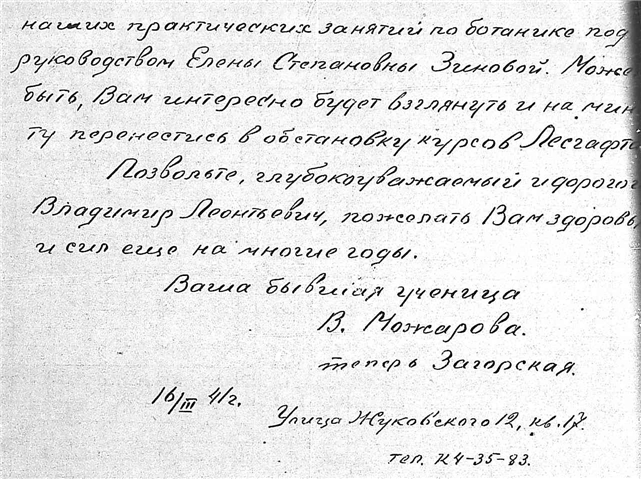 наших практических занятий по ботанике под
руководством Елены Степановны Зиновой. Може
быть, Вам интересно будет взглянуть и на мин
ту перенестись в обстановку курсов Лесгафта
Позвольте, глубокоуважаемый и дорогой
Владимир Леонтьевич, пожелать Вам здоровь
и сил еще на многие годы.
Ваша бывшая ученица
В. Можарова.
теперь Загорская.
16/III 41г.
Улица Жуковского 12, кв. 17.
тел. Ж4-35-83.